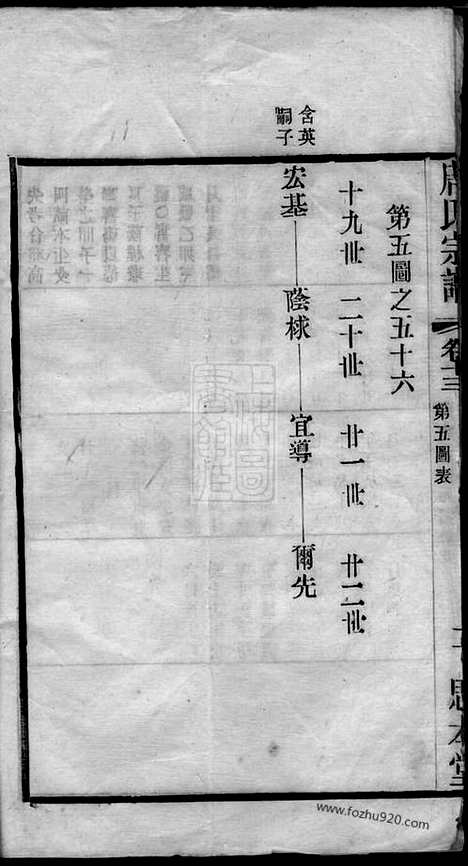 氏宗譜
卷十三
第五圖表
思本堂
第五圖之五十六
十九世 二十世 廿一世 廿二世
含英
嗣子
宏基 蔭梂 宜導 爾先
www.fozhu920.com